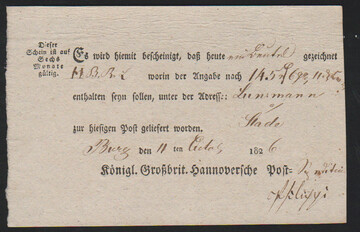 Dieser
Schein ist auf
Sechs
Monate
gültig.
Es wird hiemit bescheinigt, daß heute ein Beutel gezeichnet
H. B. worin der Angabe nach 145
enthalten seyn sollen, unter der Adresse:
Stade
zur hiesigen Post geliefert worden.
Burg den 11 ten Octob 1826
Königl. Großbrit. Hannoversche Post-